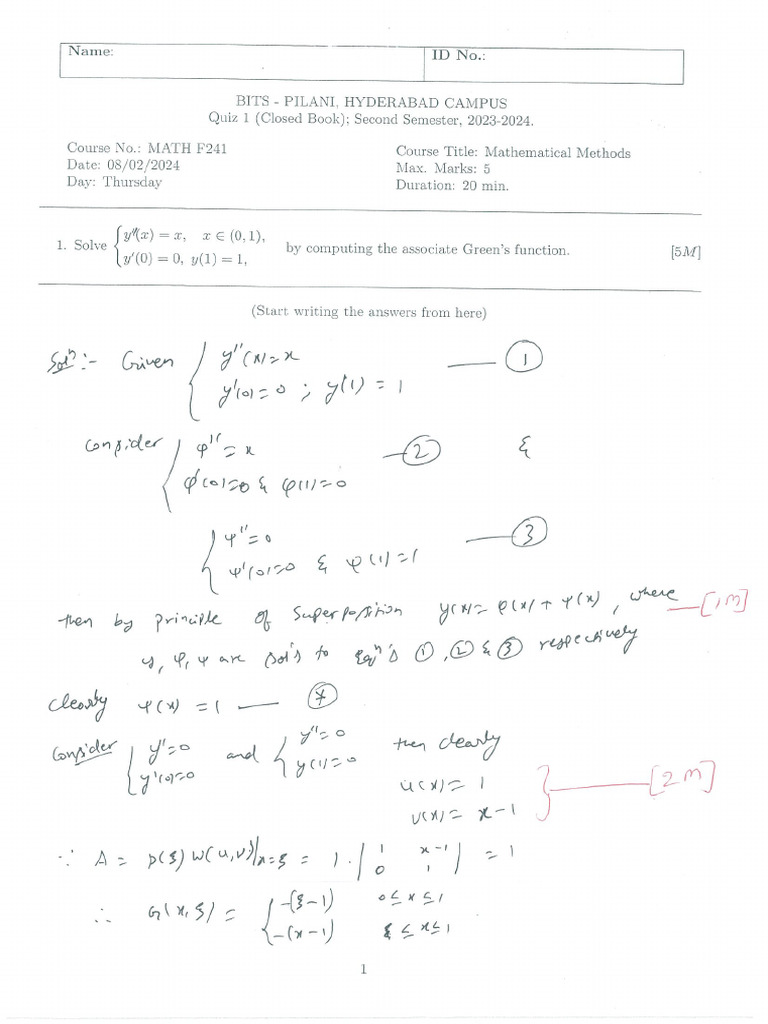 Name: ID No.:
BITS - PILANI, HYDERABAD CAMPUS
Quiz 1 (Closed Book); Second Semester, 2023-2024.
Course No.: MATH F241 Course Title: Mathematical Methods
Date: 08/02/2024 Max. Marks: 5
Day: Thursday Duration: 20 min.
1. Solve { y''(x) = x, x ∈ (0, 1), by computing the associate Green's function. [5M]
y'(0) = 0, y(1) = 1,
(Start writing the answers from here)
Solⁿ :- Given { y''(x) = x —— ①
y'(0) = 0 ; y(1) = 1
Consider { φ'' = x — ② &
φ'(0)=0 & φ(1)=0
{ ψ'' = 0 —— ③
ψ'(0)=0 & ψ(1)=1
then by principle of superposition y(x) = φ(x) + ψ(x), where —[1M]
y, φ, ψ are solⁿs to Eqⁿs ①, ② & ③ respectively
clearly ψ(x) = 1 —— (*)
Consider { y''=0 and { y''=0 then clearly
y'(0)=0 y(1)=0
u(x) = 1
v(x) = x-1 } —— [2M]
∵ A = p(ξ) W(u,v)|x=ξ = 1 · | 1 x-1 | = 1
0 1
∴ G(x,ξ) = { -(ξ-1) 0≤x≤1
-(x-1) ξ≤x≤1
1